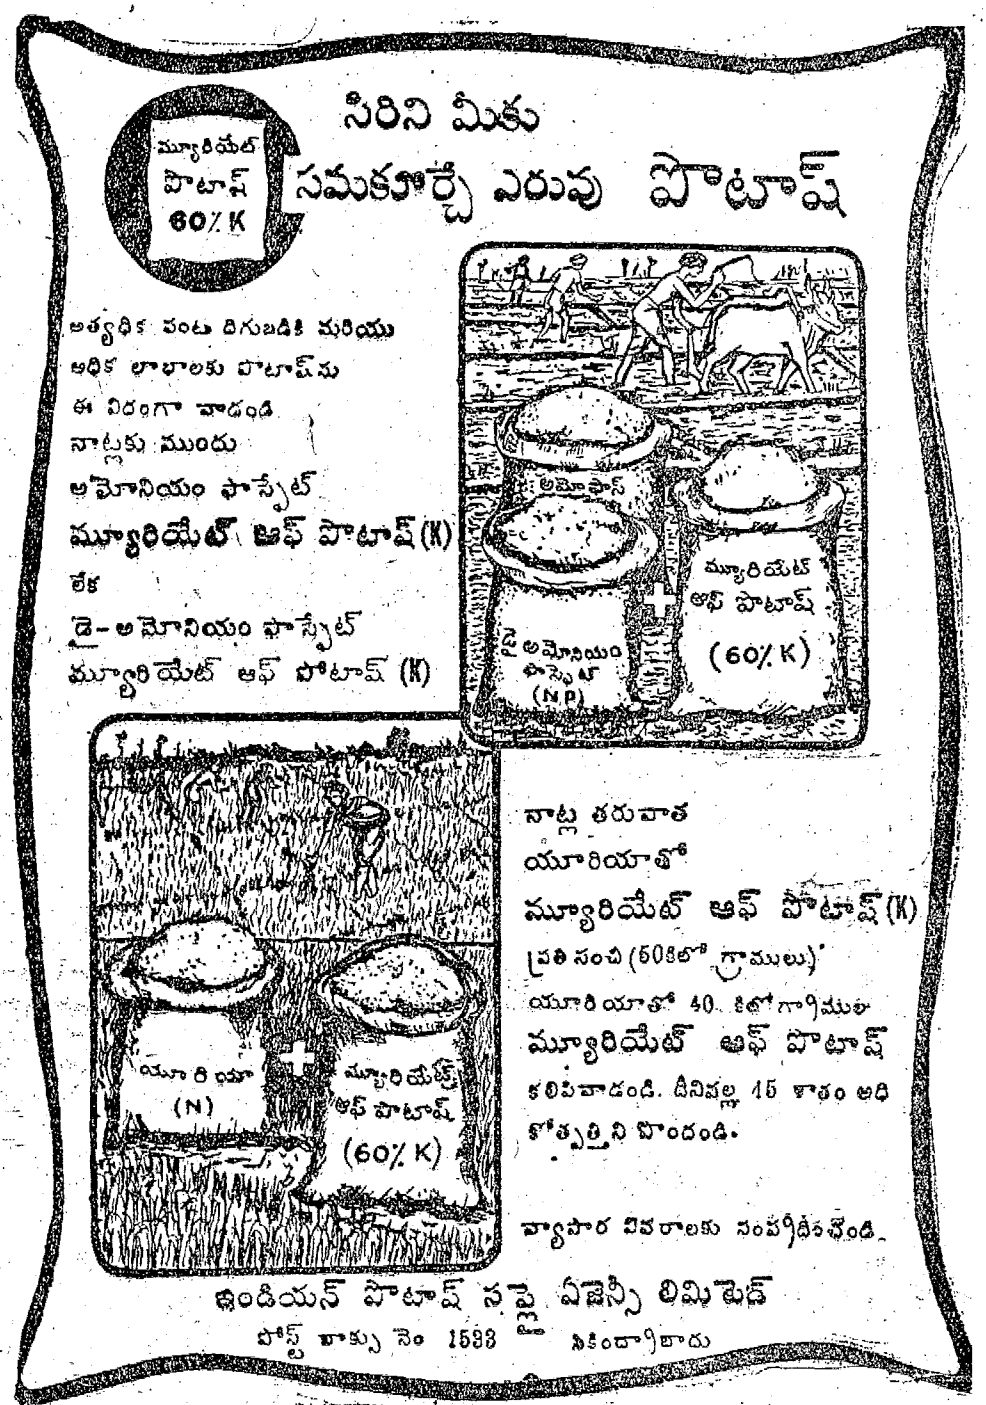 మ్యూరియేట్
పొటాష్
60% K
సిరిని మీకు
సమకూర్చే ఎరువు పొటాష్
అత్యధిక పంట దిగుబడికి మరియు
అధిక లాభాలకు పొటాష్‌ను
ఈ విదంగా వాడండి
నాట్లకు ముందు
అమోనియం ఫాస్ఫేట్
మ్యూరియేట్ ఆఫ్ పొటాష్ (K)
లేక
డై-అమోనియం ఫాస్ఫేట్
మ్యూరియేట్ ఆఫ్ పోటాష్ (K)
అమోఫాస్
డై అమోనియం
ఫాస్ఫేట్
(NP)
+
మ్యూరియేట్
ఆఫ్ పొటాష్
(60% K)
నాట్ల తరువాత
యూరియాతో
మ్యూరియేట్ ఆఫ్ పొటాష్ (K)
ప్రతి సంచి (50కిలో గ్రాములు)
యూరియాతో 40 కిలోగ్రాముల
మ్యూరియేట్ ఆఫ్ పొటాష్
కలిపివాడండి. దీనివల్ల 15 శాతం అధి
కోత్పత్తిని పొందండి.
యూరియా
(N)
+
మ్యూరియేట్
ఆఫ్ పొటాష్
(60% K)
వ్యాపార వివరాలకు సంప్రదించండి.
ఇండియన్ పొటాష్ సప్లై ఏజెన్సీ లిమిటెడ్
పోస్ట్ బాక్సు నెం 1533 సికింద్రాబాదు